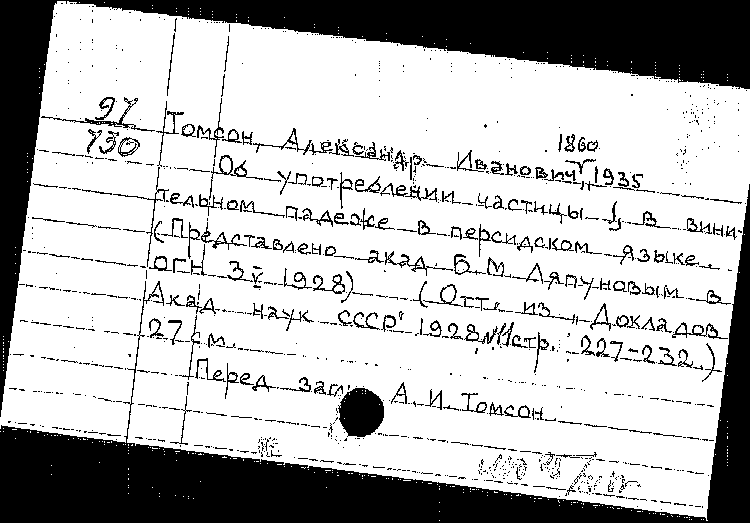 97
730
1860
Томсон, Александр Иванович, 1935
Об употреблении частицы را в вини-
тельном падеже в персидском языке.
(Представлено акад. Б.М. Ляпуновым в
ОГН 3 V 1928) (Отт. из „Докладов
Акад. наук СССР" 1928, №11 стр.: 227-232.)
27 см.
Перед загл.: А.И. Томсон.